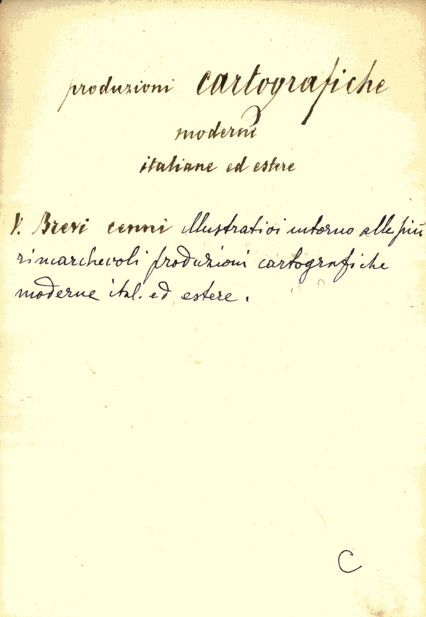 produzioni cartografiche
moderne
italiane ed estere
V. Brevi cenni illustrativi intorno alle più
rimarchevoli produzioni cartografiche
moderne ital. ed estere.
C